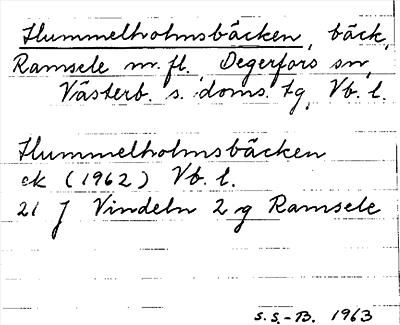 Hummelholmsbäcken, bäck,
Ramsele m.fl., Degerfors sn,
Västerb. s. doms. tg, Vb. l.
Hummelholmsbäcken
ek (1962) Vb. l.
21 J Vindeln 2 g Ramsele
S.S.-B. 1963